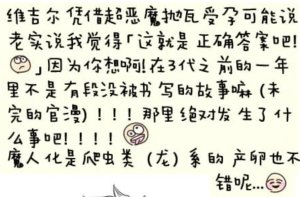 维吉尔 凭借超恶魔抛瓦受孕可能说
老实说我觉得「这就是正确答案吧!
」因为你想啊!在3代之前的一年
里不是有段没被书写的故事嘛(未
完的官漫)!!!那里绝对发生了什
么事吧!!!!
魔人化是爬虫类(龙)系的 产卵也不
错呢...